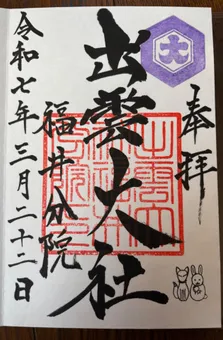 奉拝
大
出雲大社
福井分院
令和七年三月二十二日